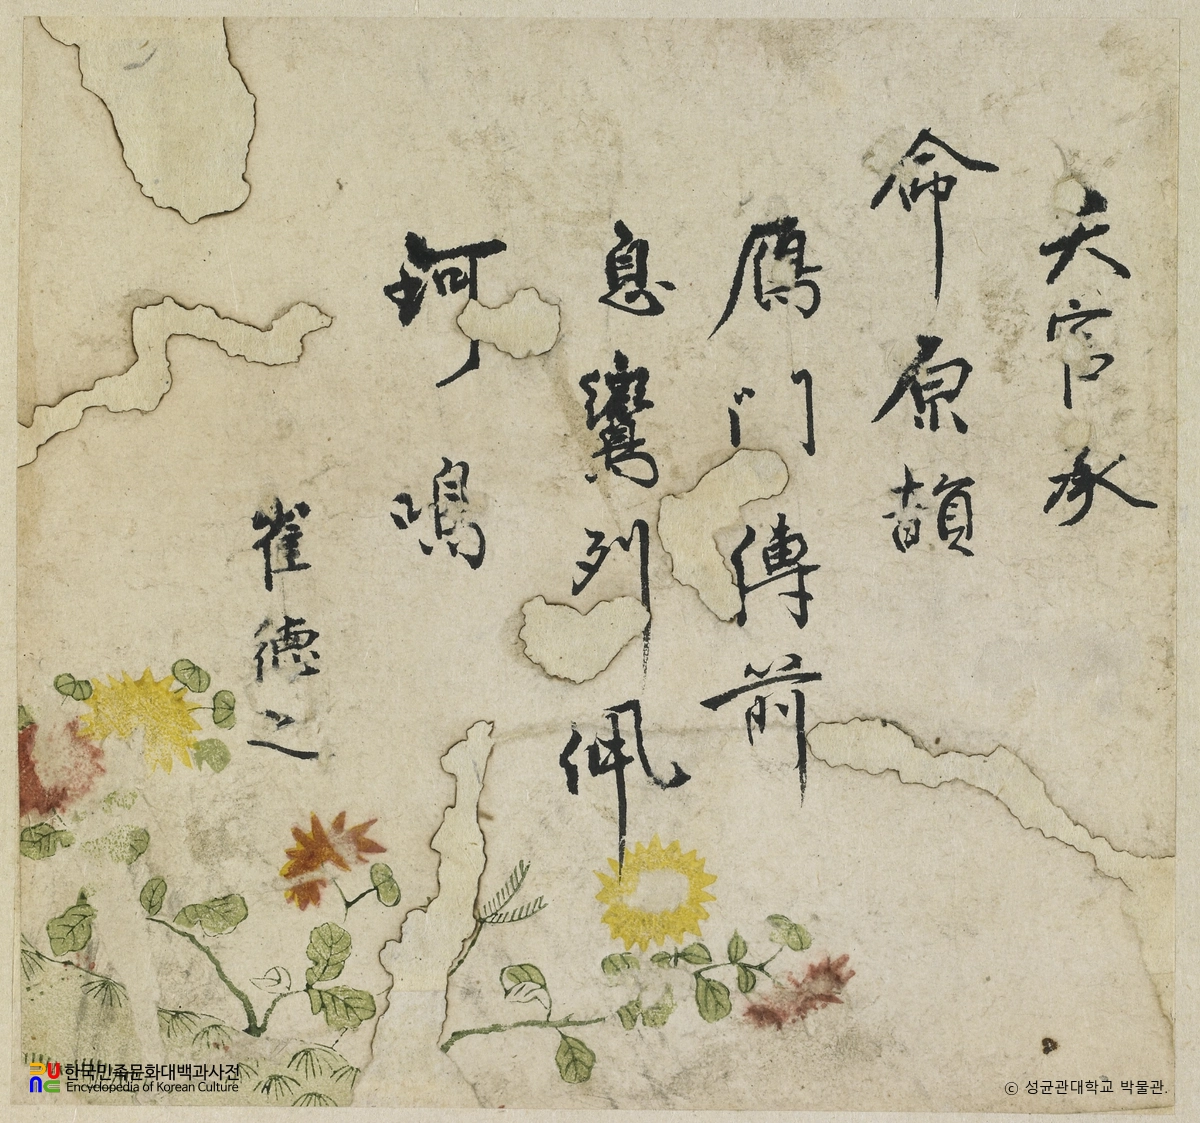 天官承
命原韻
鴈門傳前
息鸞列佩
珂鳴
崔德之
한국민족문화대백과사전
Encyclopedia of Korean Culture
ⓒ 성균관대학교 박물관.